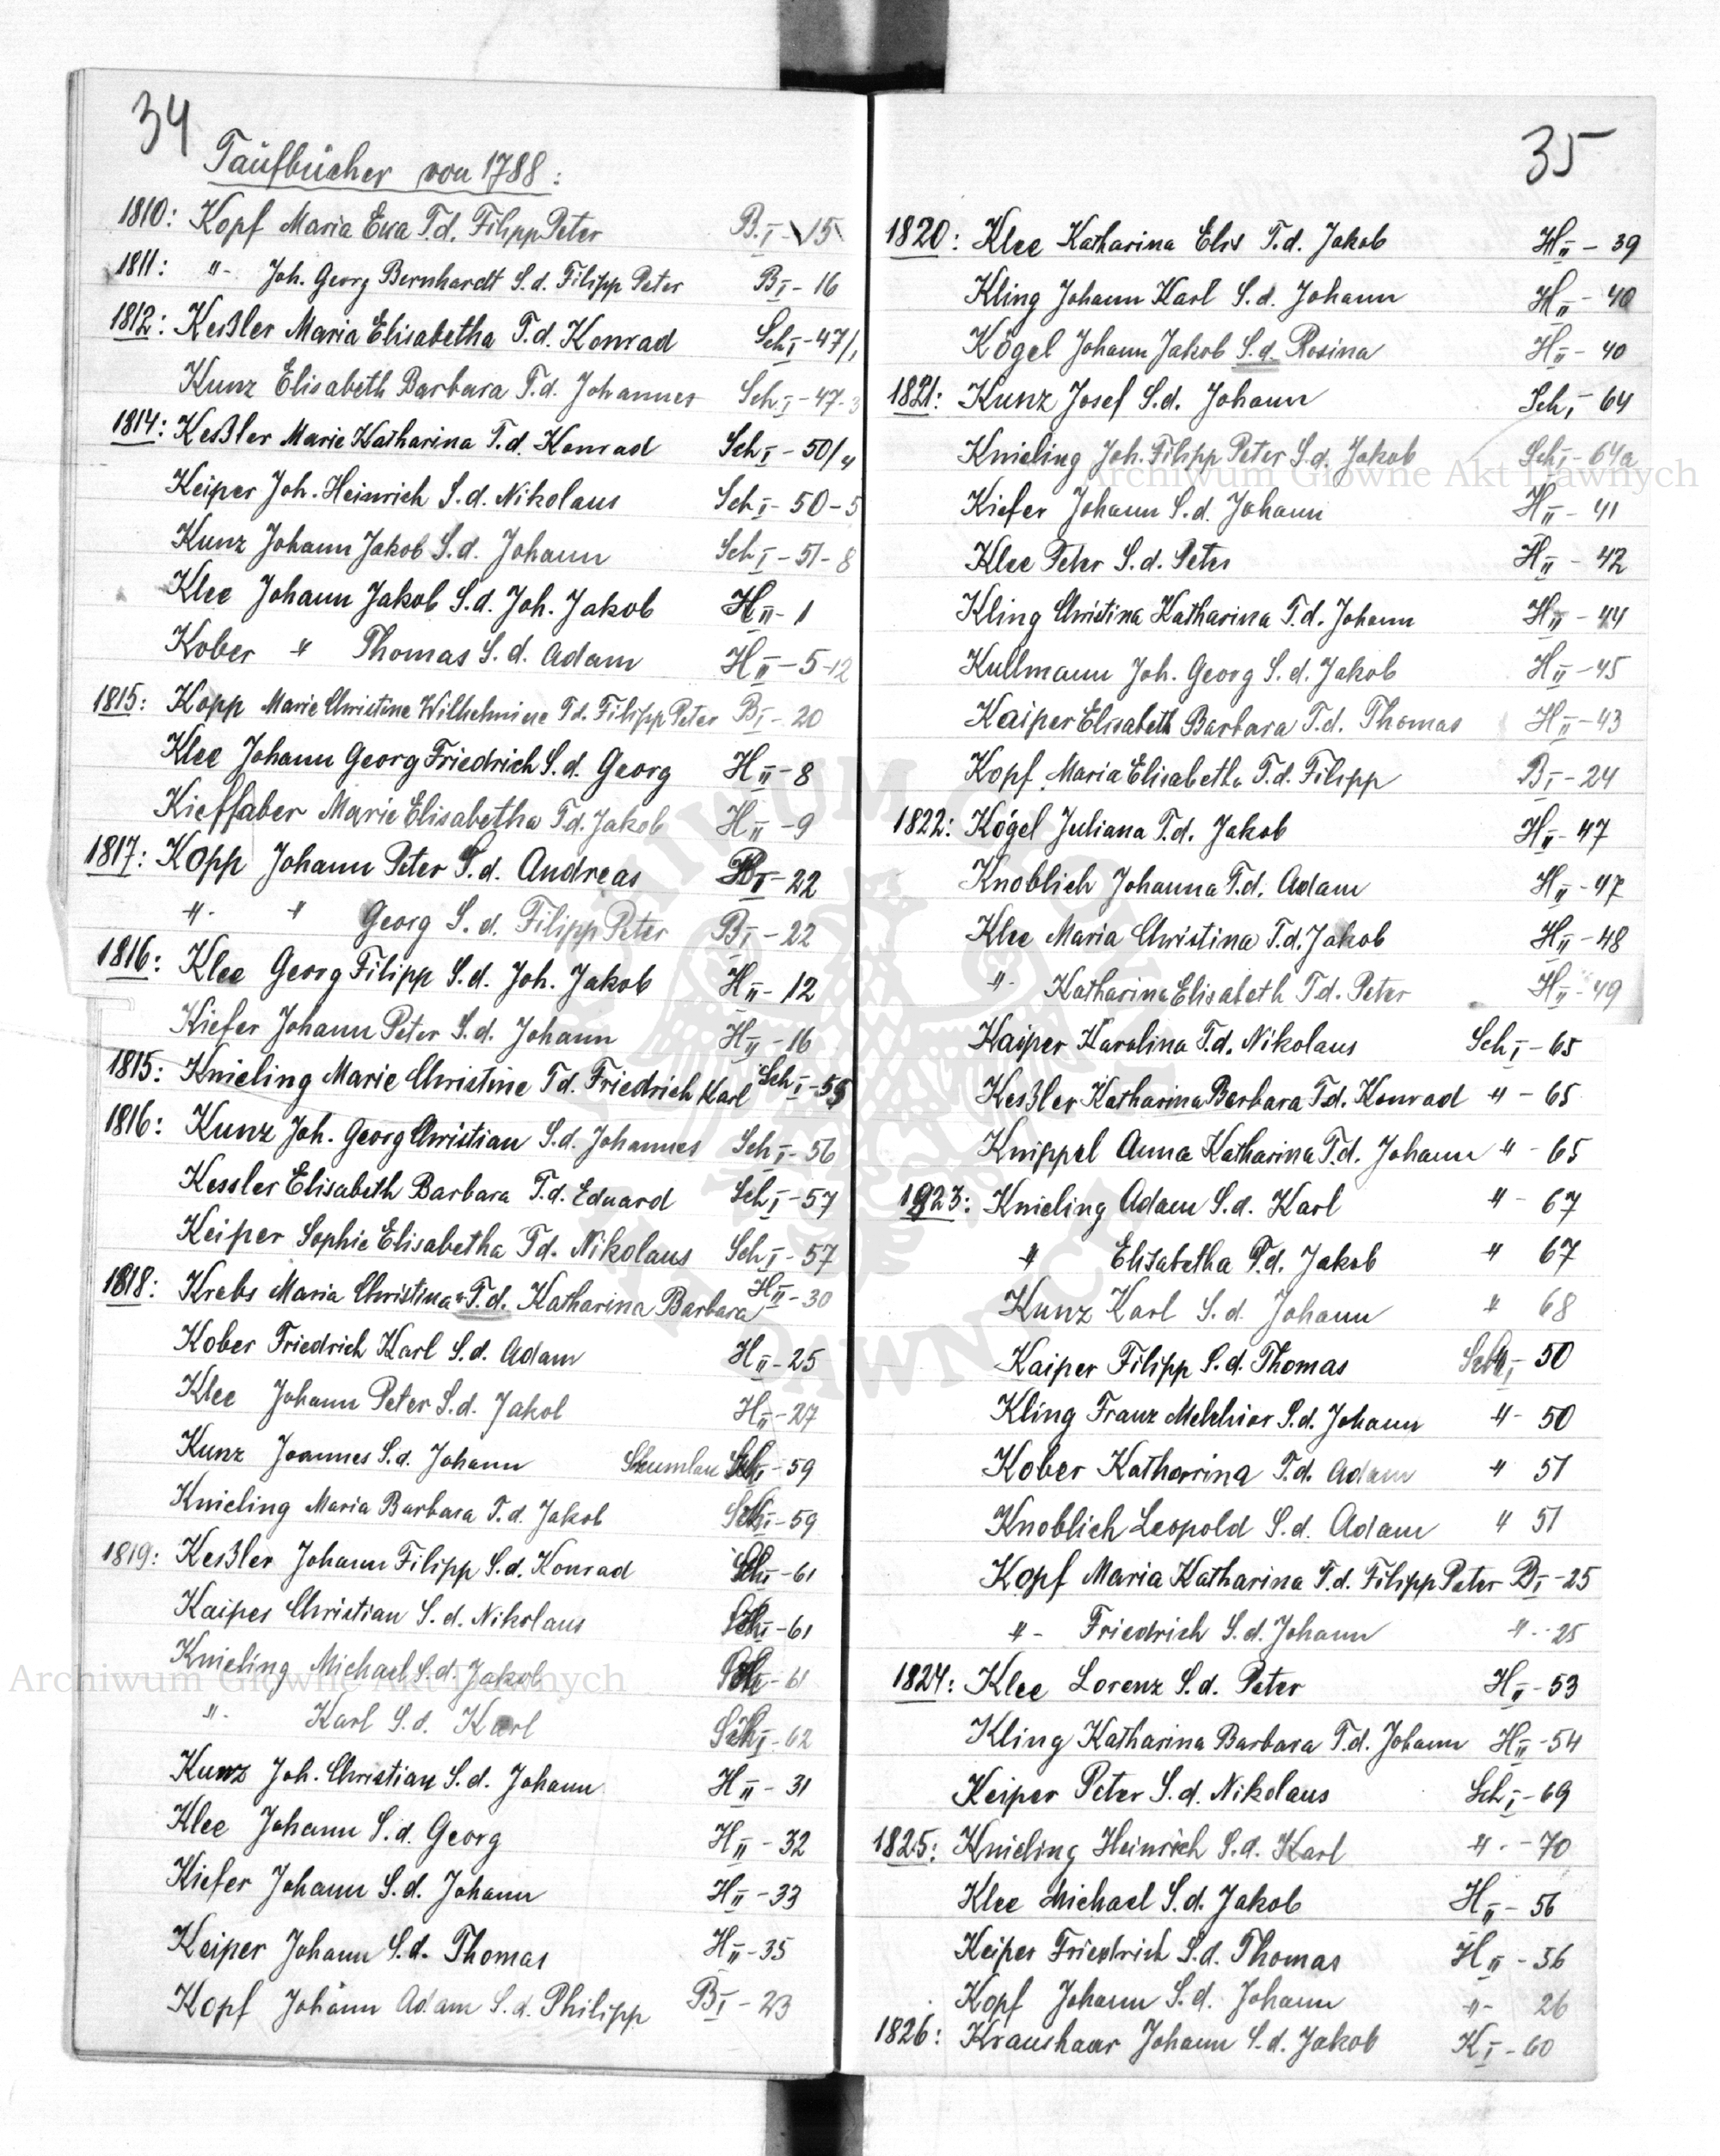 34
Taüfbücher von 1788:
1810: Kopf Maria Eva T.d. Filipp Peter B.I - 15
1811: "- Joh. Georg Bernhardt S.d. Filipp Peter BI - 16
1812: Keßler Maria Elisabetha T.d. Konrad Sch I - 47/1
Kunz Elisabeth Barbara T.d. Johannes Sch I - 47-3
1814: Keßler Marie Katharina T.d. Konrad Sch I - 50/4
Keiper Joh. Heinrich S.d. Nikolaus Sch I - 50-5
Kunz Johann Jakob S.d. Johann Sch I - 51-8
Klee Johann Jakob S.d. Joh. Jakob H II - 1
Kober " Thomas S.d. Adam H II - 5-12
1815: Kopp Marie Christine Wilhelmine T.d. Filipp Peter BI - 20
Klee Johann Georg Friedrich S.d. Georg H II - 8
Kieffaber Marie Elisabetha T.d. Jakob H II - 9
1817: Kopp Johann Peter S.d. Andreas BI - 22
"- " Georg S.d. Filipp Peter BI - 22
1816: Klee Georg Filipp S.d. Joh. Jakob H II - 12
Kiefer Johann Peter S.d. Johann H II - 16
1815: Knieling Marie Christine T.d. Friedrich Karl Sch I - 55
1816: Kunz Joh. Georg Christian S.d. Johannes Sch I - 56
Kessler Elisabeth Barbara T.d. Eduard Sch I - 57
Keiper Sophie Elisabetha T.d. Nikolaus Sch I - 57
1818: Krebs Maria Christina T.d. Katharina Barbara H II - 30
Kober Friedrich Karl S.d. Adam H II - 25
Klee Johann Peter S.d. Jakob H II - 27
Kunz Joannes S.d. Johann Sch I - 59
Knieling Maria Barbara T.d. Jakob Sch I - 59
1819: Keßler Johann Filipp S.d. Konrad Sch I - 61
Kaiper Christian S.d. Nikolaus Sch I - 61
Knieling Michael S.d. Jakob Sch I - 61
"- Karl S.d. Karl Sch I - 62
Kunz Joh. Christian S.d. Johann H II - 31
Klee Johann S.d. Georg H II - 32
Kiefer Johann S.d. Johann H II - 33
Keiper Johann S.d. Thomas H II - 35
Kopf Johann Adam S.d. Philipp BI - 23
35
1820: Klee Katharina Elis T.d. Jakob H II - 39
Kling Johann Karl S.d. Johann H II - 40
Kögel Johann Jakob S.d. Rosina H II - 40
1821: Kunz Josef S.d. Johann Sch I - 64
Knieling Joh. Filipp Peter S.d. Jakob Sch I - 64a
Kiefer Johann S.d. Johann H II - 41
Klee Peter S.d. Peter H II - 42
Kling Christina Katharina T.d. Johann H II - 44
Kullmann Joh. Georg S.d. Jakob H II - 45
Kaiper Elisabeth Barbara T.d. Thomas H II - 43
Kopf Maria Elisabetha T.d. Filipp BI - 24
1822: Kögel Juliana T.d. Jakob H II - 47
Knoblich Johanna T.d. Adam H II - 47
Klee Maria Christina T.d. Jakob H II - 48
"- Katharina Elisabeth T.d. Peter H II - 49
Kaiper Karolina T.d. Nikolaus Sch I - 65
Keßler Katharina Barbara T.d. Konrad " - 65
Knippel Anna Katharina T.d. Johann " - 65
1823: Knieling Adam S.d. Karl " - 67
" Elisabetha T.d. Jakob " 67
Kunz Karl S.d. Johann " 68
Kaiper Filipp S.d. Thomas 50
Kling Franz Melchior S.d. Johann "- 50
Kober Katharina T.d. Adam " 51
Knoblich Leopold S.d. Adam " 51
Kopf Maria Katharina T.d. Filipp Peter BI - 25
"- Friedrich S.d. Johann "- 25
1824: Klee Lorenz S.d. Peter H II - 53
Kling Katharina Barbara T.d. Johann H II - 54
Keiper Peter S.d. Nikolaus Sch I - 69
1825: Knieling Heinrich S.d. Karl "- - 70
Klee Michael S.d. Jakob H II - 56
Keiper Friedrich S.d. Thomas H II - 56
Kopf Johann S.d. Johann "- 26
1826: Kraushaar Johann S.d. Jakob K I - 60
Archiwum Główne Akt Dawnych
Archiwum Główne Akt Dawnych